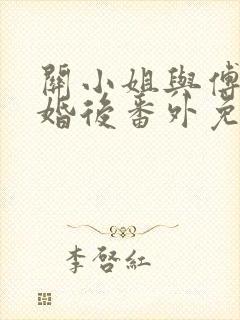 關小姐與傅
婚後番外免
李啓紅